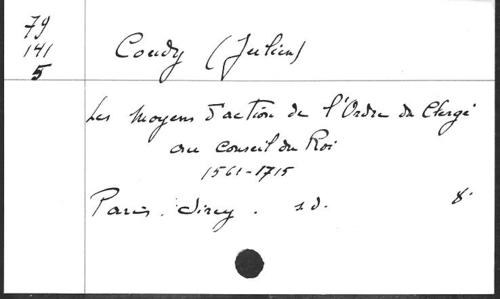 79
141
5
Coudy (Julien)
Les Moyens d'action de l'Ordre du Clergé
au conseil du Roi
1561-1715
Paris. Sirey. s.d. 8°